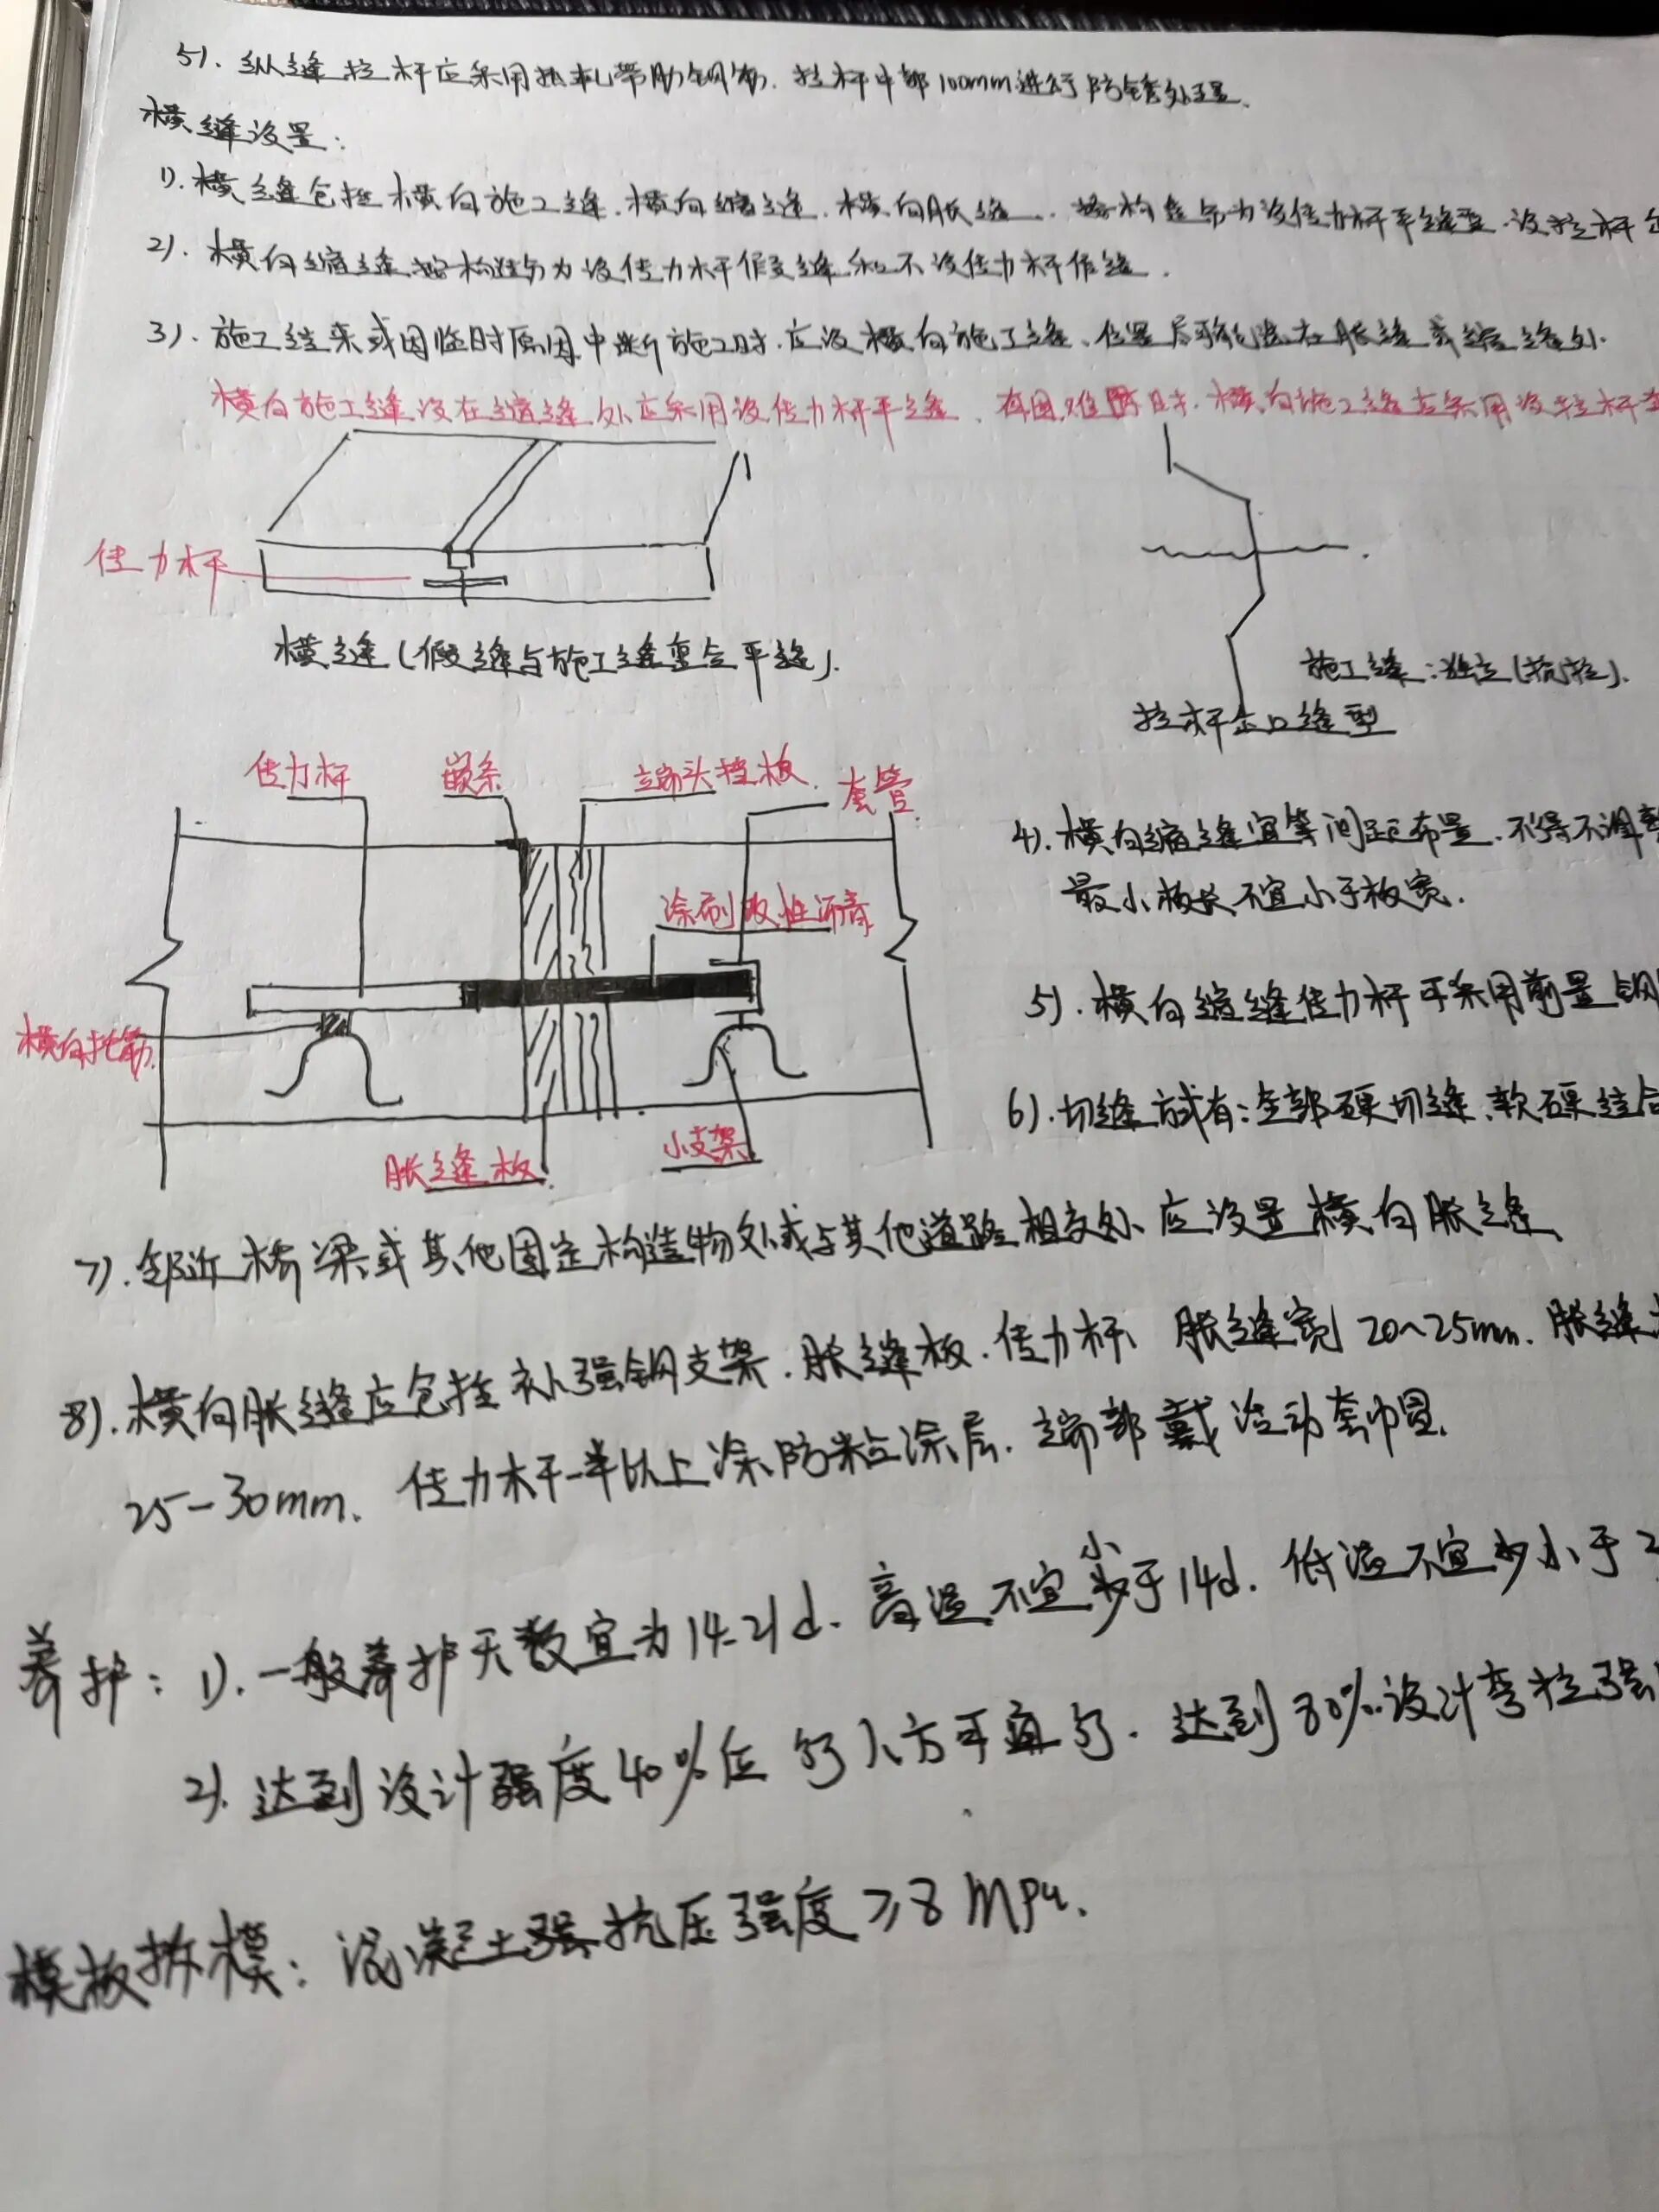 5). 纵缝拉杆应采用热轧带肋钢筋. 拉杆中部100mm进行防锈处理.
横缝设置:
1). 横缝包括横向施工缝. 横向缩缝. 横向胀缝. 按构造分为设传力杆平缝型. 设拉杆企
2). 横向缩缝按构造分为设传力杆假缝和不设传力杆假缝.
3). 施工结束或因临时原因中断施工时. 应设横向施工缝. 位置尽可能选在胀缝或缩缝处.
横向施工缝设在缩缝处应采用设传力杆平缝. 有困难时. 横向施工缝应采用设拉杆企
传力杆
横缝(假缝与施工缝重合平缝).
施工缝:独立(抗拉).
拉杆企口缝型
传力杆 嵌条 端头挡板. 套管.
4). 横向缩缝宜等间距布置. 不得不调整
最小板长不宜小于板宽.
涂刷改性沥青
5). 横向缩缝传力杆可采用前置钢
横向托筋
6). 切缝方式有:全部硬切缝、软硬结合
胀缝板. 小支架
7). 邻近桥梁或其他固定构造物处或与其他道路相交处应设置横向胀缝
8). 横向胀缝应包括补强钢支架. 胀缝板. 传力杆. 胀缝宽20~25mm. 胀缝
25-30mm. 传力杆一半以上涂防粘涂层. 端部戴活动套帽.
小
养护: 1). 一般养护天数宜为14-21d. 高温不宜于14d. 低温不宜小于
2). 达到设计强度40%后行人方可通行. 达到80%设计弯拉强
模板拆模: 混凝土抗压强度≥8MPa.